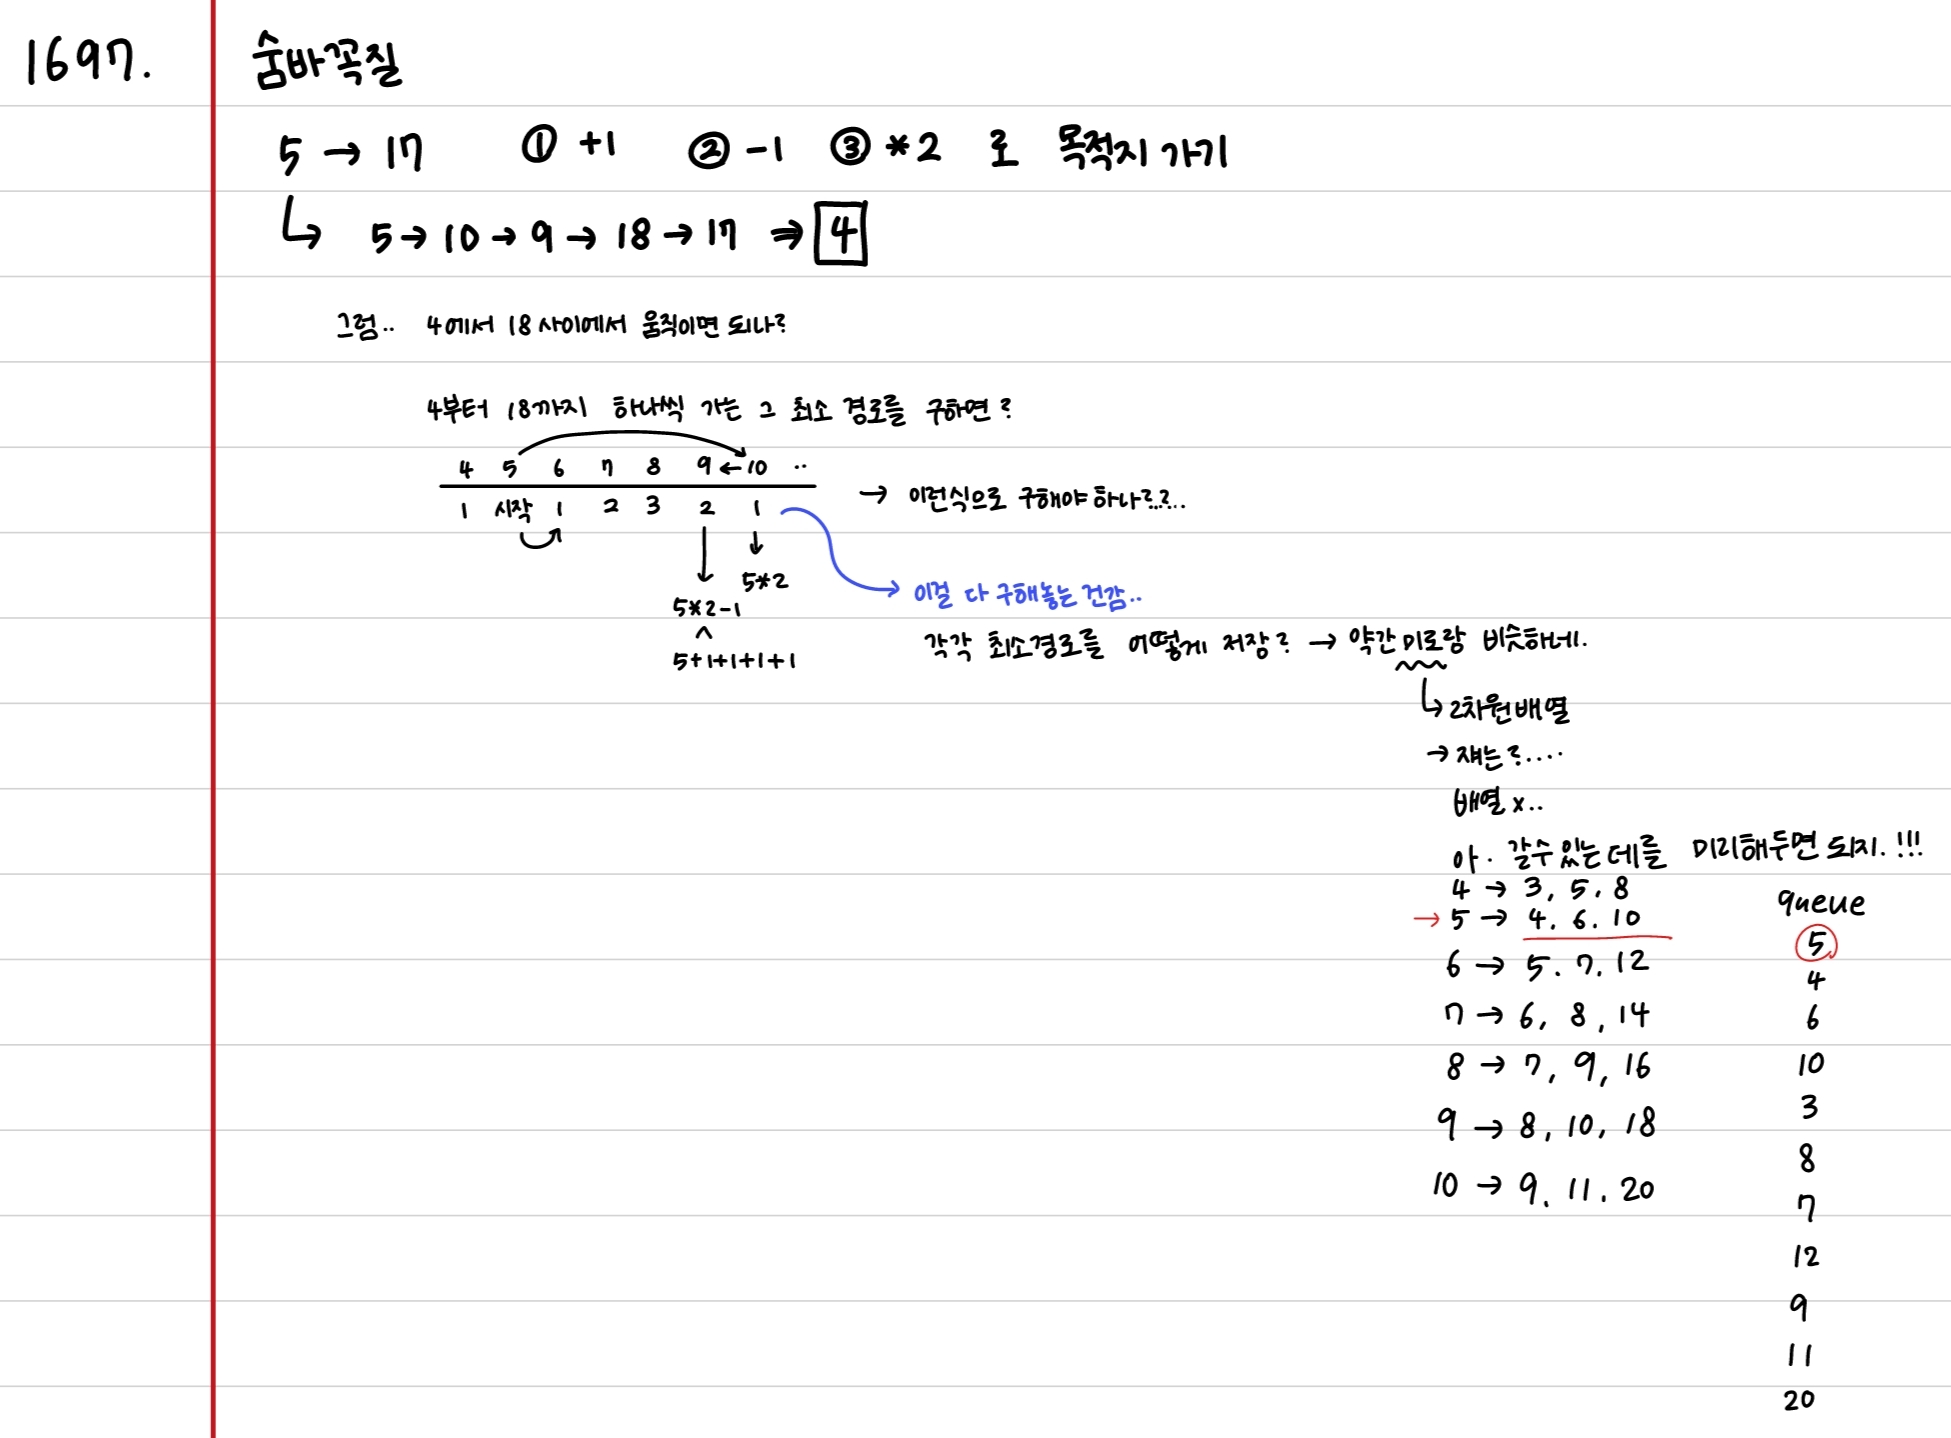 1697. 숨바꼭질
5 → 17 ① +1 ② -1 ③ *2 로 목적지 가기
↳ 5 → 10 → 9 → 18 → 17 ⇒ 4
그럼.. 4에서 18 사이에서 움직이면 되나?
4부터 18까지 하나씩 가는 그 최소 경로를 구하면?
4 5 6 7 8 9 ← 10 ..
1 시작 1 2 3 2 1
→ 이런식으로 구해야 하나??...
5*2
5*2-1
^
5+1+1+1+1
이걸 다 구해놓는 건감..
각각 최소경로를 어떻게 저장? → 약간 미로랑 비슷하네.
↳ 2차원 배열
→ 쟤는?....
배열 x..
아. 갈수 있는 데를 미리해두면 되지.!!!
4 → 3, 5. 8
→ 5 → 4. 6. 10
6 → 5. 7. 12
7 → 6, 8, 14
8 → 7, 9, 16
9 → 8, 10, 18
10 → 9. 11. 20
queue
5
4
6
10
3
8
7
12
9
11
20